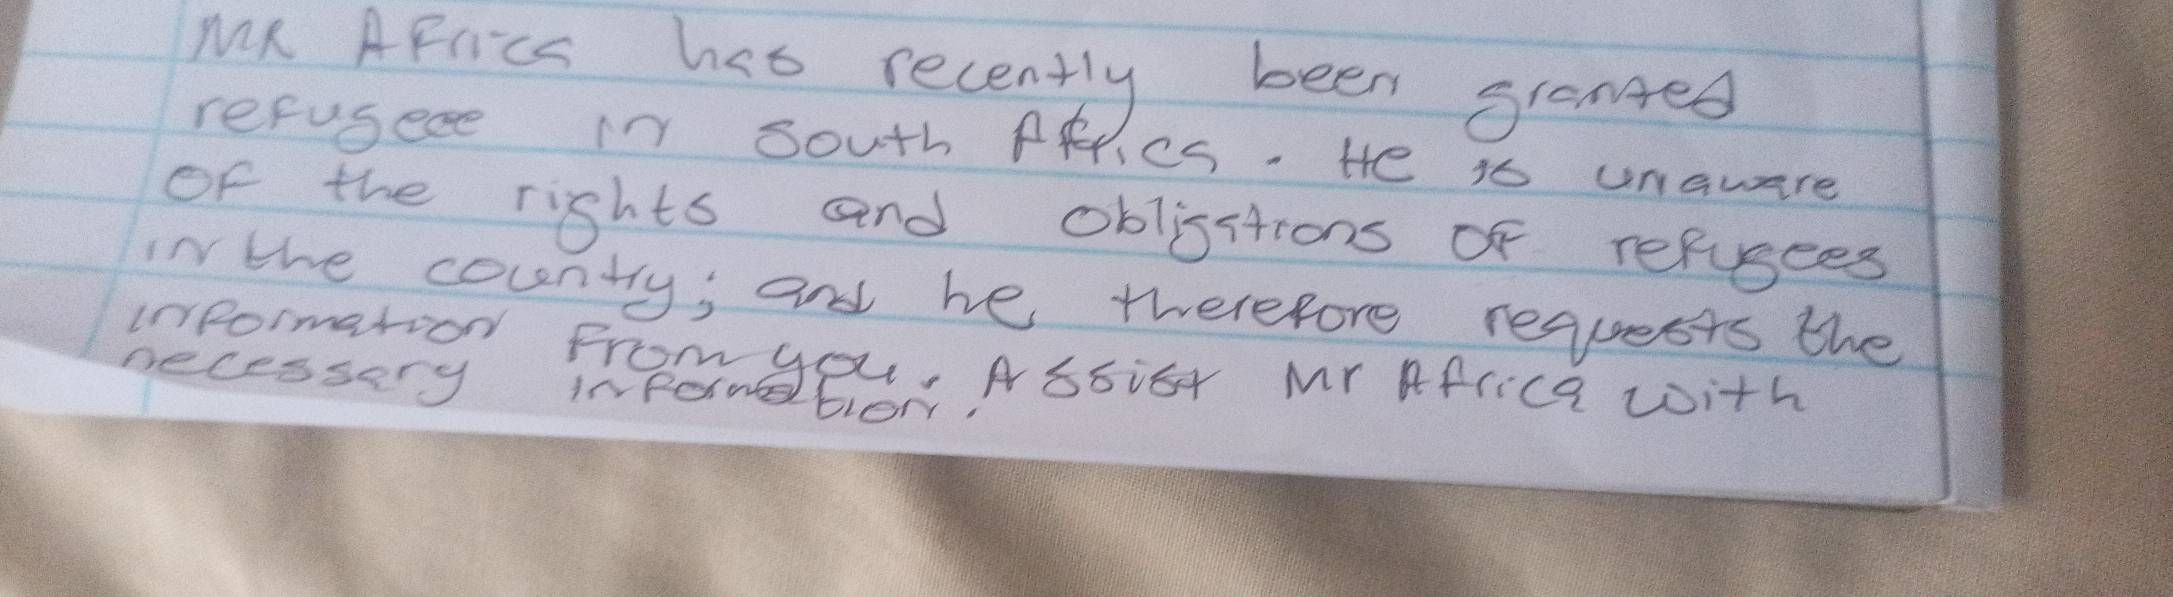 MR Africa has recently been granted
refugeee in south Africa. He is unaware
of the rights and obligations of refugees
in the country; and he, therefore requests the
information from you. Assist Mr Africa with
necessary information.